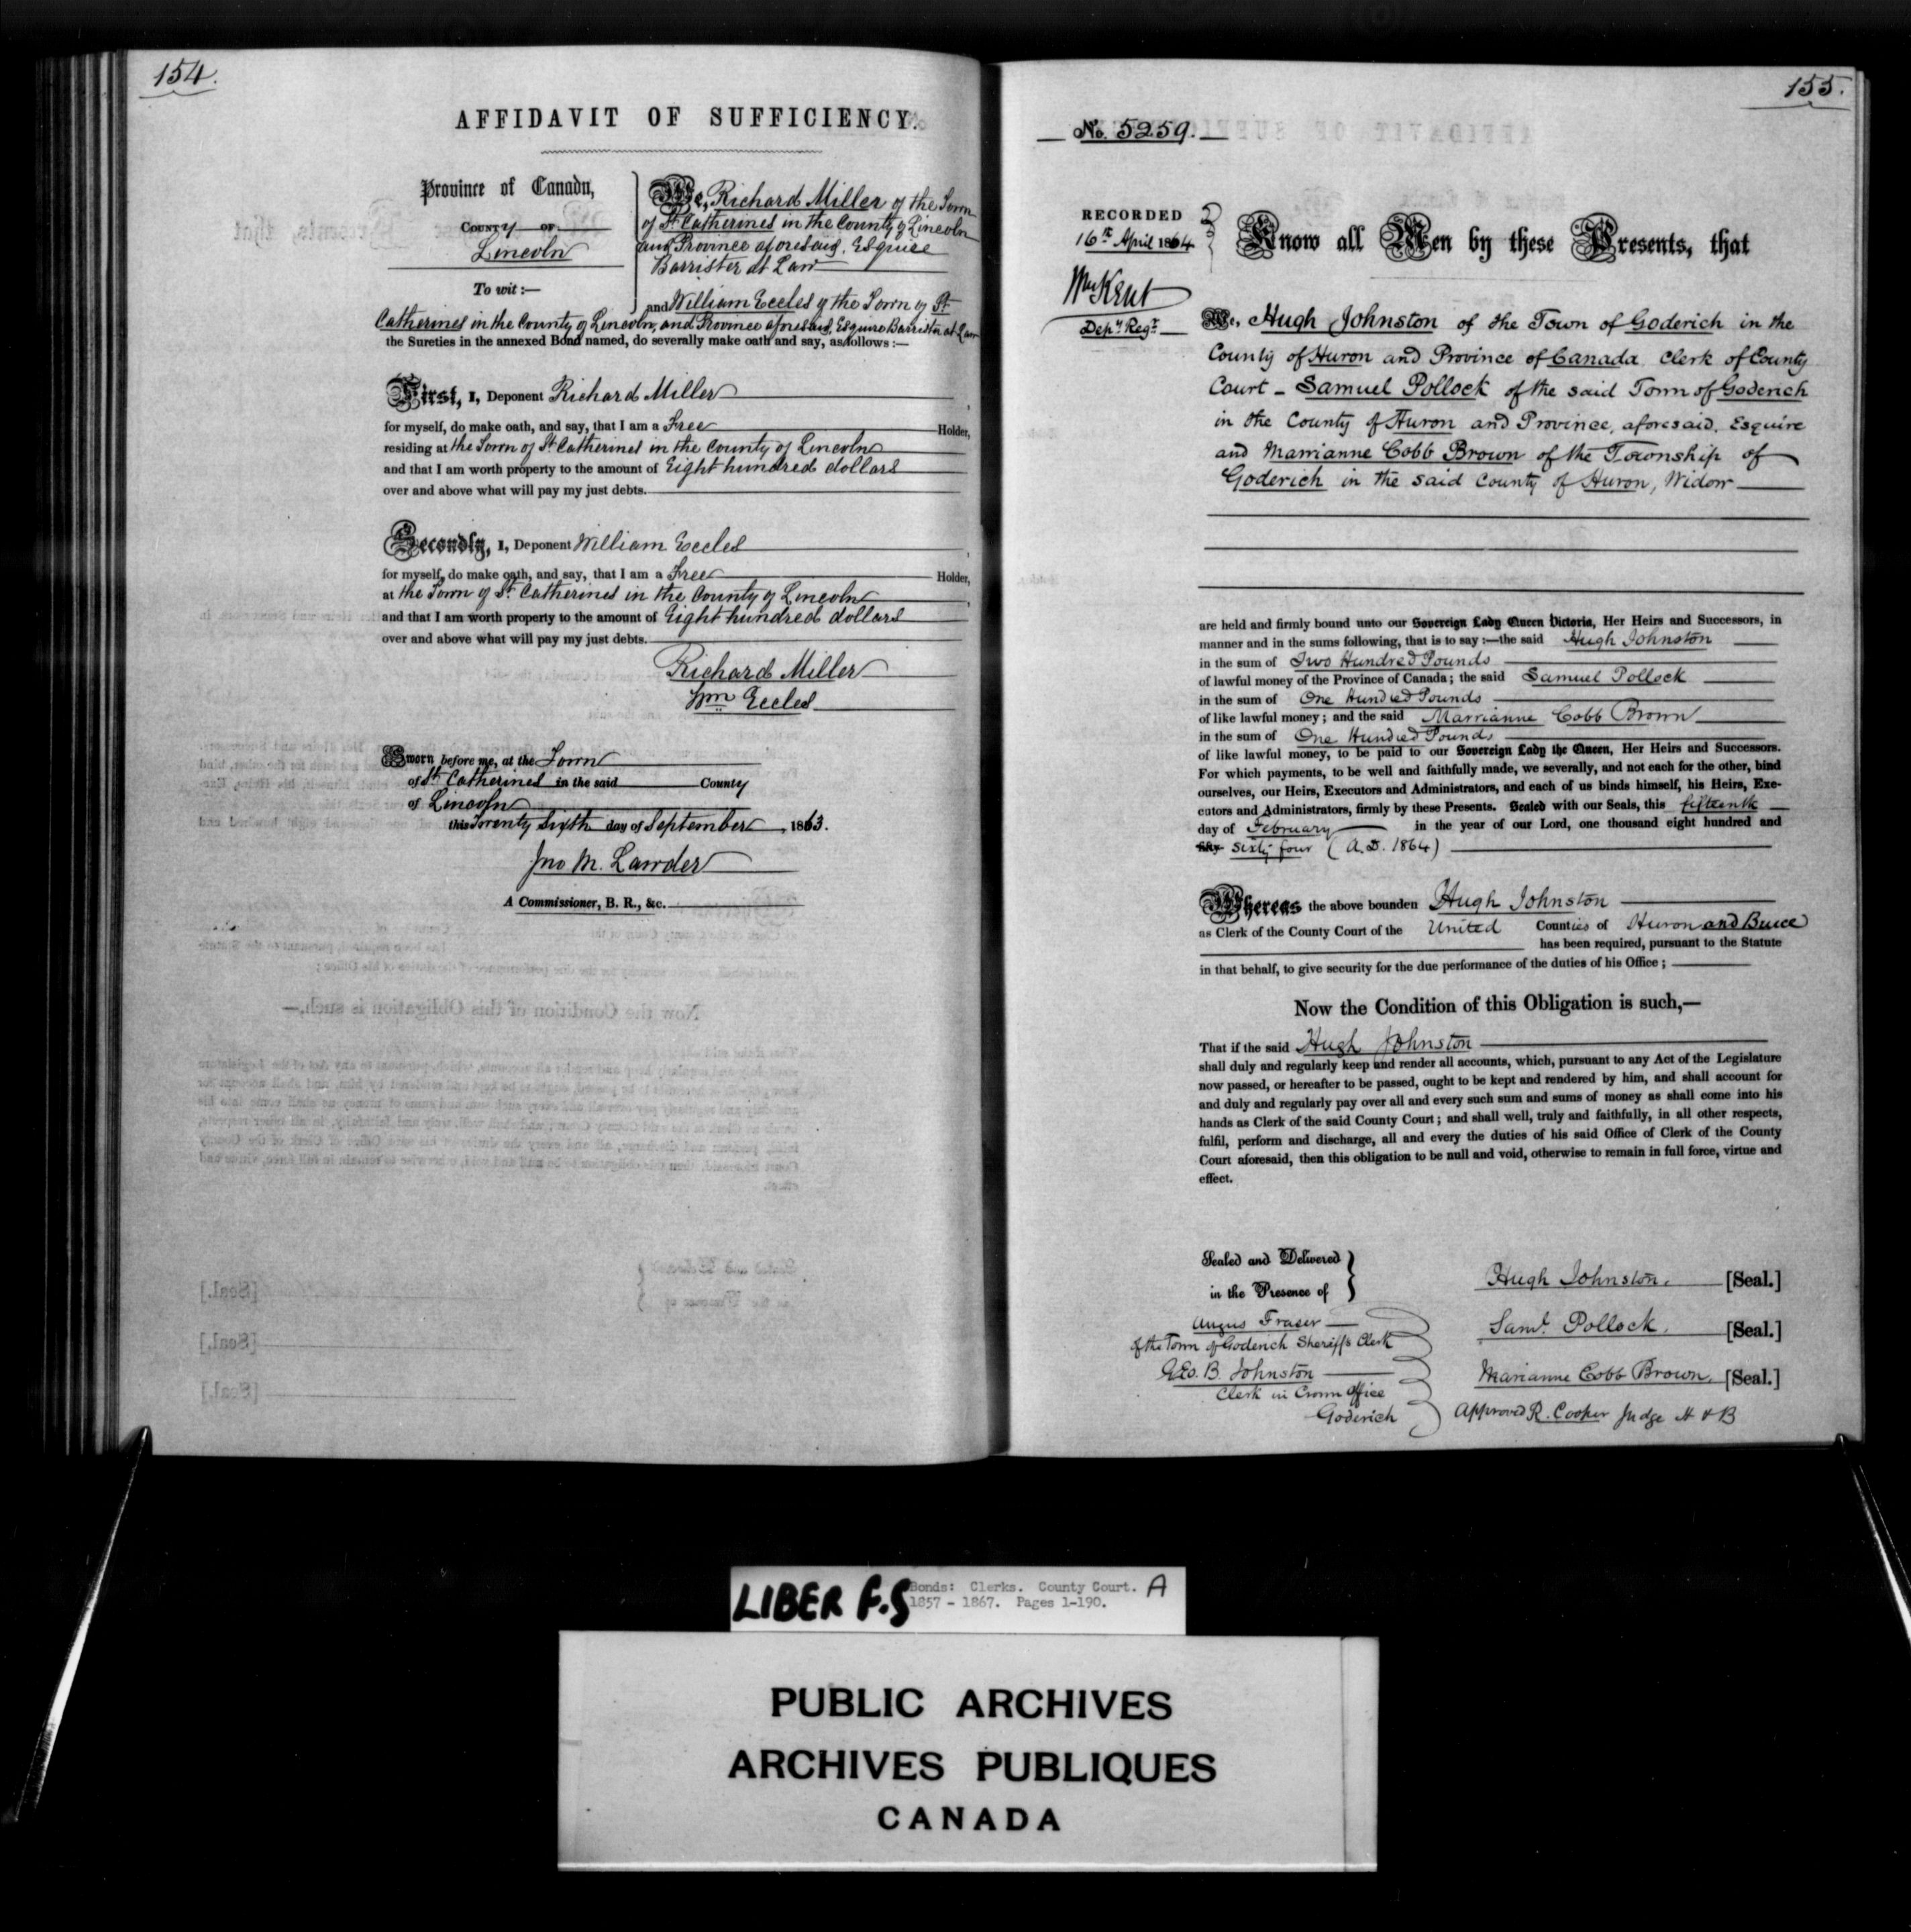 154.
AFFIDAVIT OF SUFFICIENCY.
Province of Canada,
COUNTY OF
Lincoln
To wit:—
We, Richard Miller of the Town
of St. Catherines in the County of Lincoln
and Province aforesaid, Esquire
Barrister at Law
and William Eccles of the Town of St.
Catherines in the County of Lincoln, and Province aforesaid, Esquire Barrister at Law
the Sureties in the annexed Bond named, do severally make oath and say, as follows:—
First, I, Deponent Richard Miller
for myself, do make oath, and say, that I am a Free Holder,
residing at the Town of St. Catherines in the County of Lincoln
and that I am worth property to the amount of Eight hundred dollars
over and above what will pay my just debts.
Secondly, I, Deponent William Eccles
for myself, do make oath, and say, that I am a Free Holder,
at the Town of St. Catherines in the County of Lincoln
and that I am worth property to the amount of Eight hundred dollars
over and above what will pay my just debts.
Richard Miller
Wm Eccles
Sworn before me, at the Town
of St. Catherines in the said County
of Lincoln
this Twenty Sixth day of September 1863.
Jno M. Lawder
A Commissioner, B. R., &c.
155.
No. 5259.
RECORDED
16th April 1864
Wm Kent
Depy Regr
Know all Men by these Presents, that
We, Hugh Johnston of the Town of Goderich in the
County of Huron and Province of Canada Clerk of County
Court - Samuel Pollock of the said Town of Goderich
in the County of Huron and Province, aforesaid, Esquire
and Marrianne Cobb Brown of the Township of
Goderich in the said County of Huron, Widow
are held and firmly bound unto our Sovereign Lady Queen Victoria, Her Heirs and Successors, in
manner and in the sums following, that is to say:—the said Hugh Johnston
in the sum of Two Hundred Pounds
of lawful money of the Province of Canada; the said Samuel Pollock
in the sum of One Hundred Pounds
of like lawful money; and the said Marrianne Cobb Brown
in the sum of One Hundred Pounds
of like lawful money, to be paid to our Sovereign Lady the Queen, Her Heirs and Successors.
For which payments, to be well and faithfully made, we severally, and not each for the other, bind
ourselves, our Heirs, Executors and Administrators, and each of us binds himself, his Heirs, Exe-
cutors and Administrators, firmly by these Presents. Sealed with our Seals, this fifteenth
day of February in the year of our Lord, one thousand eight hundred and
fifty sixty four (A.D. 1864)
Whereas the above bounden Hugh Johnston
as Clerk of the County Court of the United Counties of Huron and Bruce
has been required, pursuant to the Statute
in that behalf, to give security for the due performance of the duties of his Office;
Now the Condition of this Obligation is such,—
That if the said Hugh Johnston
shall duly and regularly keep and render all accounts, which, pursuant to any Act of the Legislature
now passed, or hereafter to be passed, ought to be kept and rendered by him, and shall account for
and duly and regularly pay over all and every such sum and sums of money as shall come into his
hands as Clerk of the said County Court; and shall well, truly and faithfully, in all other respects,
fulfil, perform and discharge, all and every the duties of his said Office of Clerk of the County
Court aforesaid, then this obligation to be null and void, otherwise to remain in full force, virtue and
effect.
Sealed and Delivered
in the Presence of
Angus Fraser
of the Town of Goderich Sheriffs Clerk
Geo. B. Johnston
Clerk in Crown Office
Goderich
Hugh Johnston. [Seal.]
Saml. Pollock. [Seal.]
Marianne Cobb Brown. [Seal.]
Approved R. Cooper Judge H & B
LIBER F.S
Bonds: Clerks. County Court. A
1857 - 1867. Pages 1-190.
PUBLIC ARCHIVES
ARCHIVES PUBLIQUES
CANADA